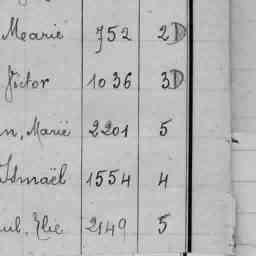 Mearie 752 2D
Victor 1036 3D
n, Marie 2201 5
Ismaël 1554 4
ul. Elie 2149 5